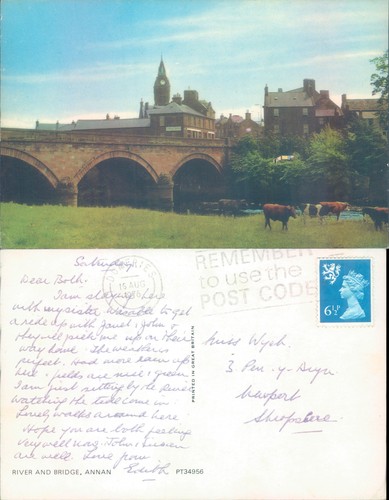 Saturday
Dear Both.
I am staying here
with my sister to get
a ride up with Janet & John &
they will pick me up on their
way home. The weather is
perfect. Had more rain up
here & fields are nice & green.
I am just sitting by the river
watching the tide come in.
Lovely walks around here
Hope you are both feeling
very well now. John &
are well. Love from
Edith
RIVER AND BRIDGE, ANNAN PT34956
PRINTED IN GREAT BRITAIN
DUMFRIES
15 AUG
REMEMBER
to use the
POST CODE
6½P
Miss Wych.
3 Pen-y-Bryn
Newport
Shropshire.